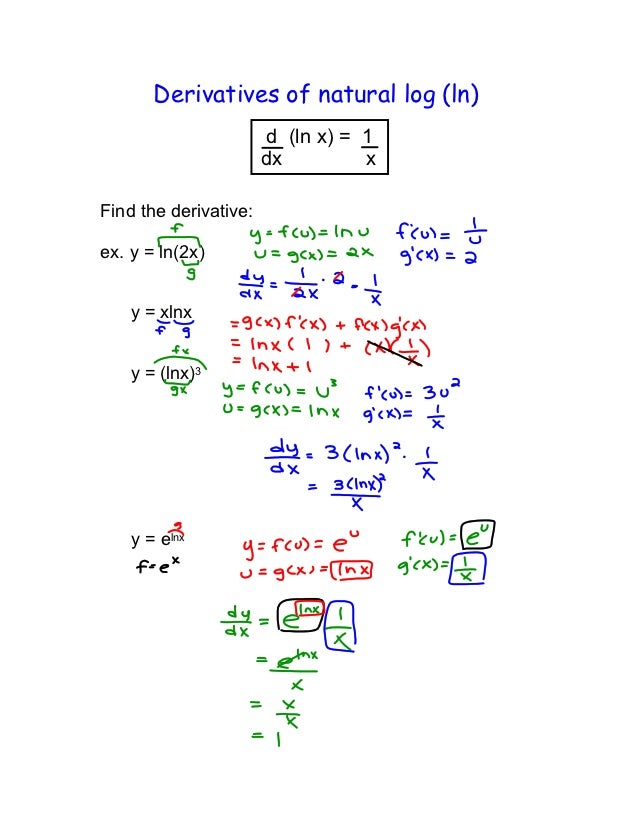 Derivatives of natural log (ln)
d (ln x) = 1
dx x
Find the derivative:
f
ex. y = ln(2x)
g
y = f(u) = ln u f'(u) = 1/u
u = g(x) = 2x g'(x) = 2
dy/dx = 1/2x · 2 = 1/x
y = xlnx
f g
= g(x) f'(x) + f(x) g'(x)
= ln x ( 1 ) + (x)(1/x)
= ln x + 1
fx
y = (lnx)³
gx
y = f(u) = u³ f'(u) = 3u²
u = g(x) = ln x g'(x) = 1/x
dy/dx = 3 (ln x)² · 1/x
= 3 (ln x)²/x
g
y = eˡⁿˣ
f = eˣ
y = f(u) = eᵘ f'(u) = eᵘ
u = g(x) = ln x g'(x) = 1/x
dy/dx = eˡⁿˣ 1/x
= eˡⁿˣ/x
= x/x
= 1